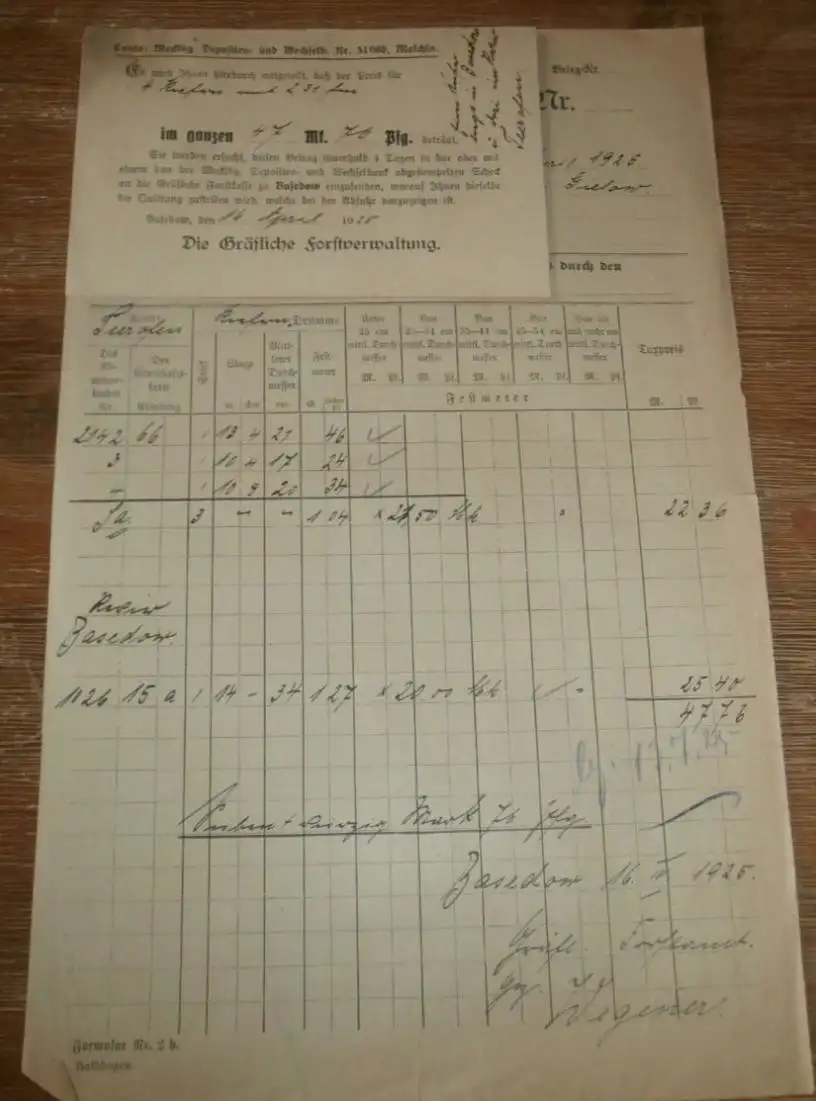 Conto: Mecklbg. Depositen- und Wechselb. Nr. 51060, Malchin.
Es wird Ihnen hierdurch mitgeteilt, daß der Preis für
4 Kiefern mit 2 31 fm
im ganzen 47 Mk. 76 Pfg. beträgt.
Sie werden ersucht, diesen Betrag innerhalb 4 Tagen in bar oder mit
einem von der Mecklbg. Depositen- und Wechselbank abgestempelten Scheck
an die Gräfliche Forstkasse zu Basedow einzusenden, worauf Ihnen dieselbe
der Quittung zustellen wird, welche bei der Abfuhr vorzuzeigen ist.
Basedow, den 16 April 1925
Die Gräfliche Forstverwaltung.
Teerofen
Beleg-Nr.
Nr.
1925
Gielow.
durch den
Revier Teerofen
Kiefern Stämme
Unter 25 cm mittl. Durchmesser
Von 25–34 cm mittl. Durchmesser
Von 35–44 cm mittl. Durchmesser
Von 45–54 cm mittl. Durchmesser
mittl. Durchmesser
Taxpreis
Des Nummerbuches Nr.
Der Wirtschaftskarte Abteilung
Stück
Länge
Mittlerer Durchmesser
Festmeter
m cm
M. Pf. M. Pf. M. Pf. M. Pf. M. Pf.
Festmeter
M. Pf.
2142 66 1 13 4 21 46
3 1 10 4 17 24
– 1 10 8 20 34
Sa. 3 " " 1 04 × 21 50 Mk 22 36
Revier
Basedow.
1026 15 a 1 14 – 34 1 27 × 20 00 Mk 25 40
47 76
Sieben + vierzig Mark 76 Pfg
Basedow 16. IV. 1925.
Gräfl. Forstamt.
gez.
Wegener.
Formular Nr. 2 b.